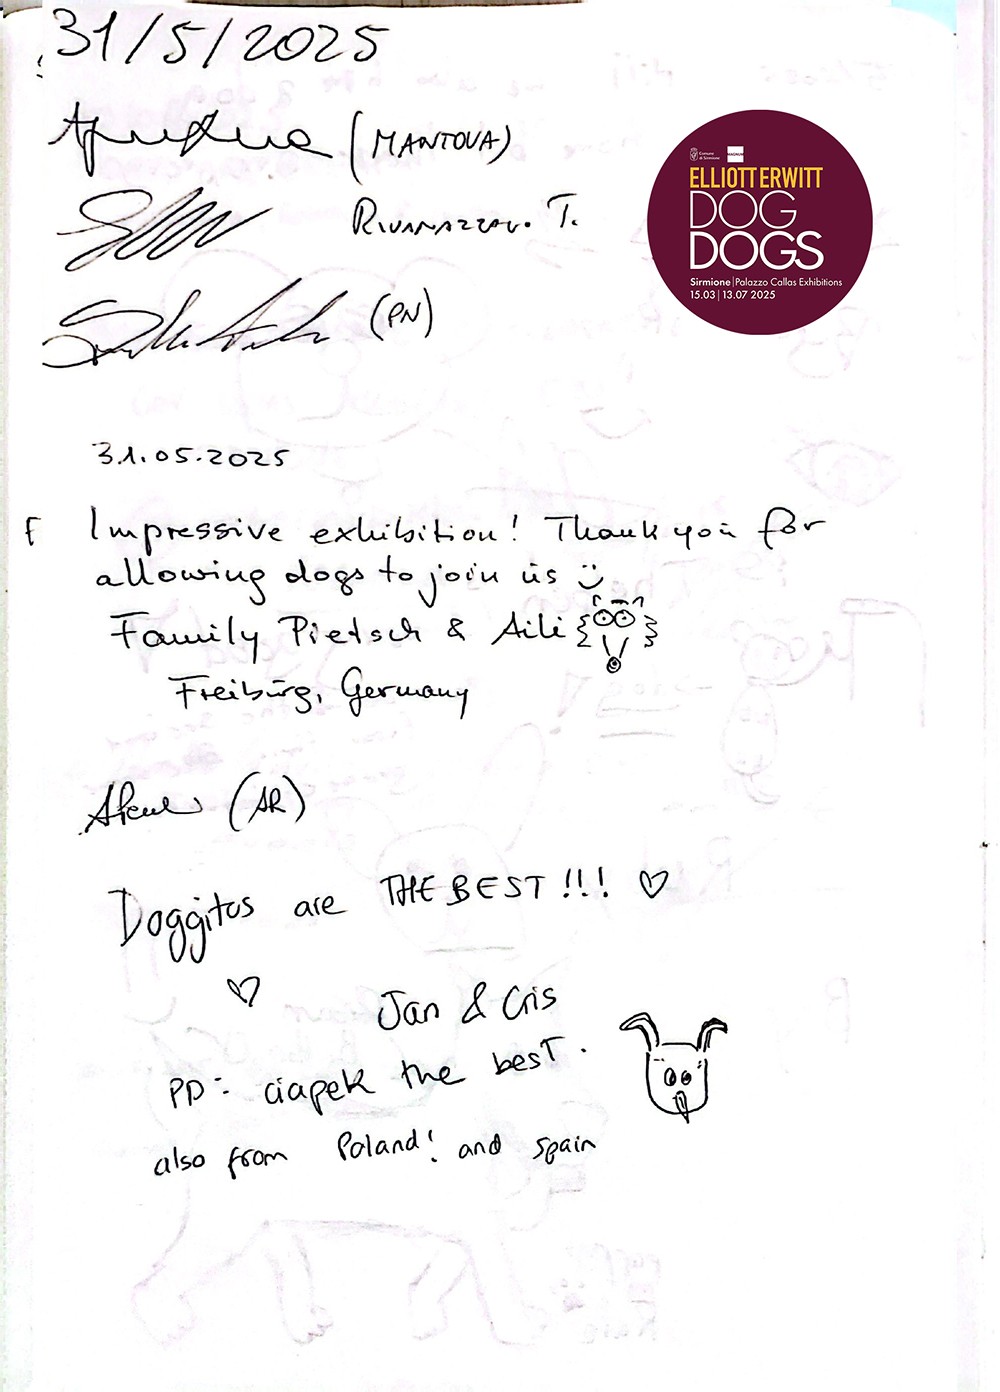 31/5/2025
(MANTOVA)
T.
(PN)
Comune
di Sirmione
MAGNUM
ELLIOTT ERWITT
DOG
DOGS
Sirmione | Palazzo Callas Exhibitions
15.03 | 13.07 2025
31.05.2025
Impressive exhibition! Thank you for
allowing dogs to join us
Family Pietsch & Aili
Freiburg, Germany
(AR)
Doggitos are THE BEST!!! ♡
♡
Jan & Cris
PD: ciapek the best.
also from Poland! and spain